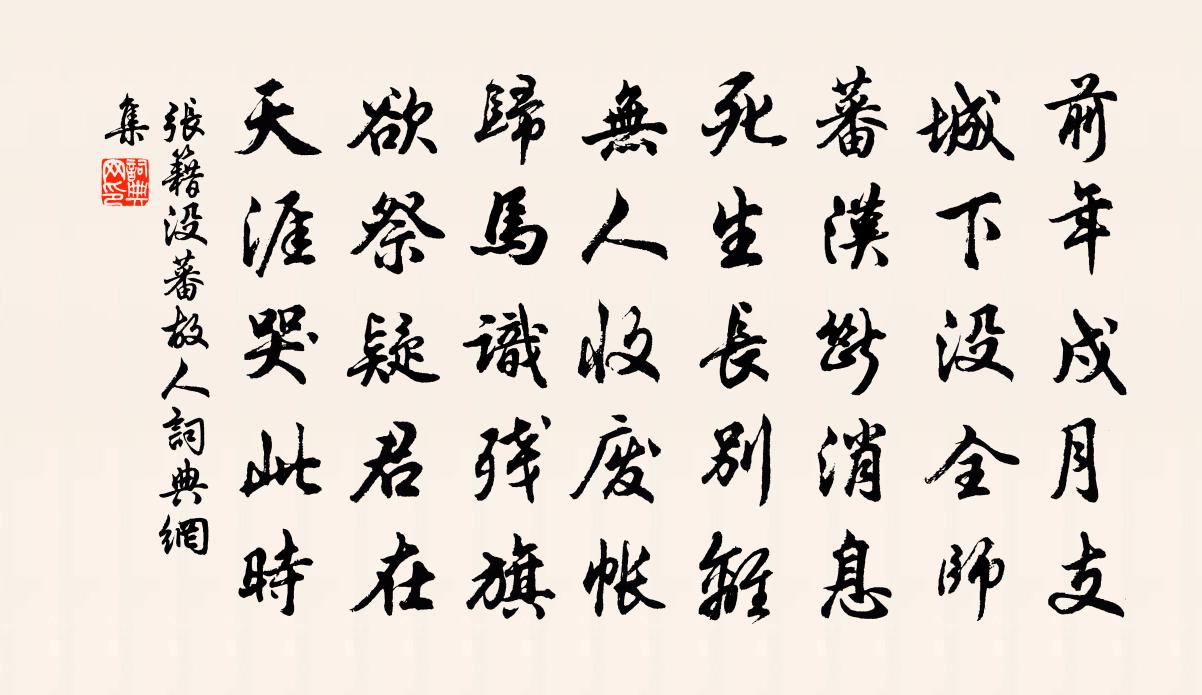 前年戍月支
城下没全师
蕃漢斷消息
死生長別離
無人收废帐
歸馬識残旗
欲祭疑君在
天涯哭此時
張籍没蕃故人詞典網
集
詞典
网印